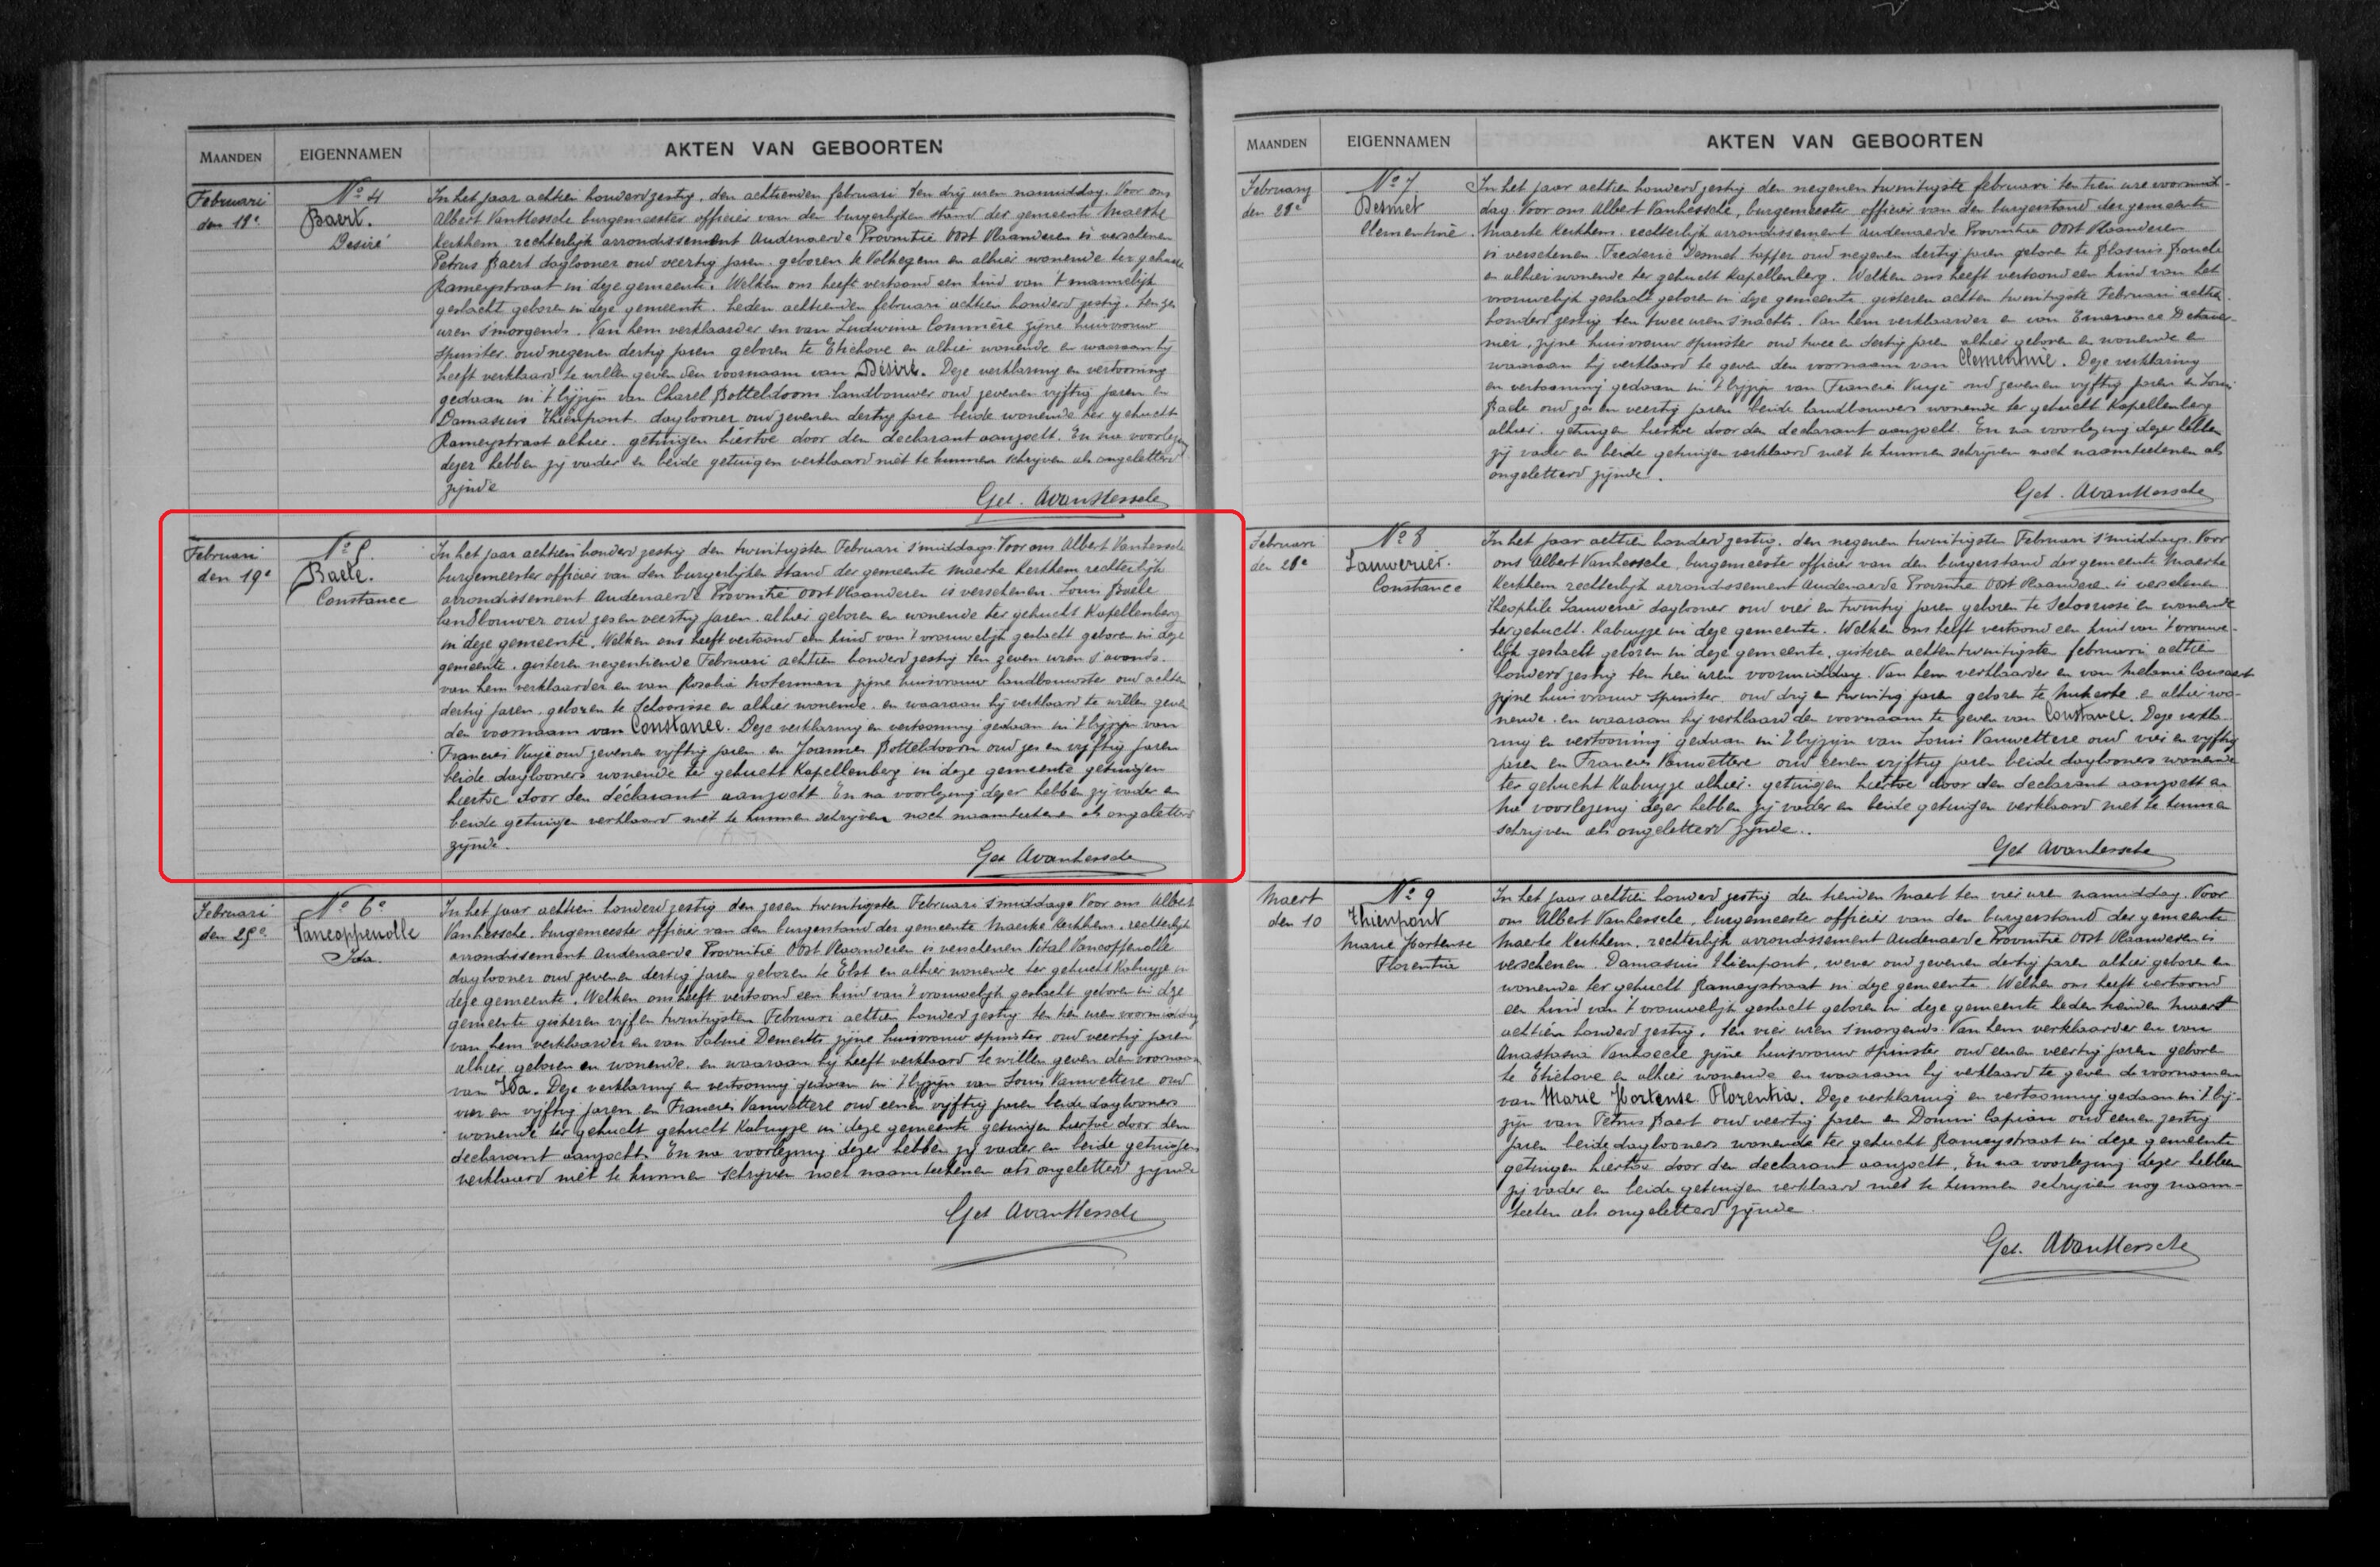 MAANDEN EIGENNAMEN AKTEN VAN GEBOORTEN
Februari den 18e
No 4
Baert.
Desiré
In het jaar achtien honderd zestig, den achtienden februari ten drij uren namiddag. Voor ons
Albert VanHessche burgemeester officier van den burgerlijken stand der gemeente Maerke
Kerkhem rechterlijk arrondissement Audenaerde Provintie Oost Vlaanderen is verschenen
Petrus Baert daglooner oud veertig jaren geboren te Volkegem en alhier wonende ter gehucht
Rameystraat in deze gemeente. Welken ons heeft vertoond een kind van 't mannelijk
geslacht geboren in deze gemeente heden achtienden februari achtien honderd zestig. ten zes
uren s'morgends. Van hem verklaarder en van Ludwina Commère zijne huisvrouw
spinster oud negenen dertig jaren geboren te Etichove en alhier wonende en waaraan hij
heeft verklaard te willen geven den voornaam van Desiré. Deze verklaring en vertooning
gedaan in 't bijzijn van Charel Botteldoorn landbouwer oud zevenen vijftig jaren en
Damasius Thienpont daglooner oud zevenen dertig jare beide wonende ter gehucht
Rameystraat alhier. getuigen hiertoe door den declarant aanzocht. En na voorlezing
dezer hebben zij vader en beide getuigen verklaard niet te kunnen schrijven als ongeletterd
zijnde
Get. AvanHessche
Februari den 19e
No 5.
Baele.
Constance
In het jaar achtien honderd zestig den twintigsten Februari s'middags. Voor ons Albert Vanhessche
burgemeester officier van den burgerlijken stand der gemeente Maerke Kerkhem rechterlijk
arrondissement Audenaerde Provintie Oost Vlaanderen is verschenen. Louis Baele
landbouwer oud zesen veertig jaren. alhier geboren en wonende ter gehucht Kapellenberg
in deze gemeente. Welken ons heeft vertoond een kind van 't vrouwelijk geslacht geboren in deze
gemeente. gisteren negentiende Februari achtien honderd zestig ten zeven uren s'avonds.
van hem verklaarder en van Rosalia Noterman zijne huisvrouw landbouwster oud achten
dertig jaren. geboren te Schoorisse en alhier wonende. en waaraan hij verklaard te willen geven
den voornaam van Constance. Deze verklaring en vertooning gedaan in 't bijzijn van
Francies Vuyé oud zevenen vijftig jaren en Joannes Botteldoorn oud zes en vijftig jaren
beide daglooners wonende ter gehucht Kapellenberg in deze gemeente getuigen
hiertoe door den déclarant aanzocht. En na voorlezing dezer hebben zij vader en
beide getuigen verklaard niet te kunnen schrijven noch naamteekenen als ongeletterd
zijnde.
Get Avanhessche
Februari den 25e
No 6e
Vancoppenolle
Ida.
In het jaar achtien honderd zestig den zesen twintigsten Februari s'middags Voor ons Albert
Vanhessche. burgemeester officier van den burgerstand der gemeente Maerke Kerkhem. rechterlijk
arrondissement Audenaerde Provintie Oost Vlaanderen is verschenen Vital Vancoppenolle
daglooner oud zevenen dertig jaren geboren te Elst en alhier wonende ter gehucht Kabuyze in
deze gemeente. Welken ons heeft vertoond een kind van 't vrouwelijk geslacht geboren in deze
gemeente gisteren vijfen twintigsten Februari achtien honderd zestig ten tien uren voormiddag
van hem verklaarder en van Sabine zijne huisvrouw spinster oud veertig jaren
alhier geboren en wonende. en waaraan hij heeft verklaard te willen geven den voornaam
van Ida. Deze verklaring en vertooning gedaan in 't bijzijn van Louis Vanwettere oud
vier en vijftig jaren en Francies Vanwettere oud eenen vijftig jaren beide daglooners
wonende ter gehucht gehucht Kabuyze in deze gemeente getuigen hiertoe door den
declarant aanzocht. En na voorlezing dezer hebben zij vader en beide getuigen
verklaard niet te kunnen schrijven noch naamteekenen als ongeletterd zijnde
Get AvanHessche
MAANDEN EIGENNAMEN AKTEN VAN GEBOORTEN
Februarij den 28e
No 7.
Desmet
Clementine.
In het jaar achtien honderd zestig den negenen twintigste februari ten tien ure voormid-
dag Voor ons Albert Vanhessche, burgemeester officier van den burgerstand der gemeente
Maerke Kerkhem. rechterlijk arrondissement Audenaerde Provintie Oost Vlaanderen
is verschenen. Frederic Desmet tapper oud negenen dertig jaren geboren te Blasius Boucle
en alhier wonende ter gehucht Kapellenberg. Welken ons heeft vertoond een kind van het
vrouwelijk geslacht geboren in deze gemeente gisteren achten twintigste Februari achtien
honderd zestig ten twee uren s'nachts. Van hem verklaarder en van Emerence Detaver-
nier, zijne huisvrouw spinster oud twee en dertig jaren alhier geboren en wonende en
waaraan hij verklaard te geven den voornaam van Clementine. Deze verklaring
en vertooning gedaan in 't bijzijn van Francis Vuyé oud zevenen vijftig jaren en Louis
Baele oud zes en veertig jaren beide landbouwers wonende ter gehucht Kapellenberg
alhier. getuigen hiertoe door den declarant aanzocht. En na voorlezing dezer hebben
zij vader en beide getuigen verklaard niet te kunnen schrijven noch naamteekenen als
ongeletterd zijnde.
Get. AvanHessche
Februari den 28e
No 8
Lauwerier.
Constance
In het jaar achtien honderd zestig. den negenen twintigsten Februari s'middags. Voor
ons Albert Vanhessche, burgemeester officier van den burgerstand der gemeente Maerke
Kerkhem rechterlijk arrondissement Audenaerde Provintie Oost Vlaandere. is verschenen
Theophile Lauwerier daglooner oud vier en twintig jaren geboren te Schorisse en wonende
ter gehucht. Kabuyze in deze gemeente. Welken ons heeft vertoond een kind van 't vrouwe-
lijk geslacht geboren in deze gemeente, gisteren achtentwintigsten februari achtien
honderd zestig ten tien uren voormiddag. Van hem verklaarder en van Melanie
zijne huisvrouw spinster oud drij en twintig jaren geboren te Nukerke e alhier wo-
nende. en waaraan hij verklaard den voornaam te geven van Constance. Deze verkla-
ring en vertooning gedaan in 't bijzijn van Louis Vanwettere oud vier en vijftig
jaren en Francies Vanwettere oud eenen vijftig jaren beide daglooners wonende
ter gehucht Kabuyze alhier. getuigen hiertoe door den declarant aanzocht en
na voorlezing dezer hebben zij vader en beide getuigen verklaard niet te kunnen
schrijven als ongeletterd zijnde..
Get Avanhessche
Maert den 10
No 9
Thienpont
Marie Hortense
Florentia
In het jaar achtien honderd zestig den tienden Maert ten vier ure namiddag. Voor
ons Albert Vanhessche, burgemeester officier van den burgerstand der gemeente
Maerke Kerkhem, rechterlijk arrondissement Audenaerde Provintie Oost Vlaanderen is
verschenen. Damasius Thienpont, wever oud zevenen dertig jaren alhier geboren en
wonende ter gehucht Rameystraat in deze gemeente. Welken ons heeft vertoond
een kind van 't vrouwelijk geslacht geboren in deze gemeente heden tienden Maert
achtien honderd zestig. ten vier uren s'morgends. Van hem verklaarder en van
Anastasia Vanhaecke zijne huisvrouw spinster oud eenen veertig jaren geboren
te Etichove en alhier wonende en waaraan hij verklaard te geven de voornamen
van Marie Hortense Florentia. Deze verklaring en vertooning gedaan in 't bij-
zijn van Petrus Baert oud veertig jaren en Domini Capian oud eenen zestig
jaren beide daglooners wonende ter gehucht Rameystraat in deze gemeente
getuigen hiertoe door den declarant aanzocht, En na voorlezing dezer hebben
zij vader en beide getuigen verklaard niet te kunnen schrijven nog naam-
teeken als ongeletterd zijnde.
Get. AvanHessche